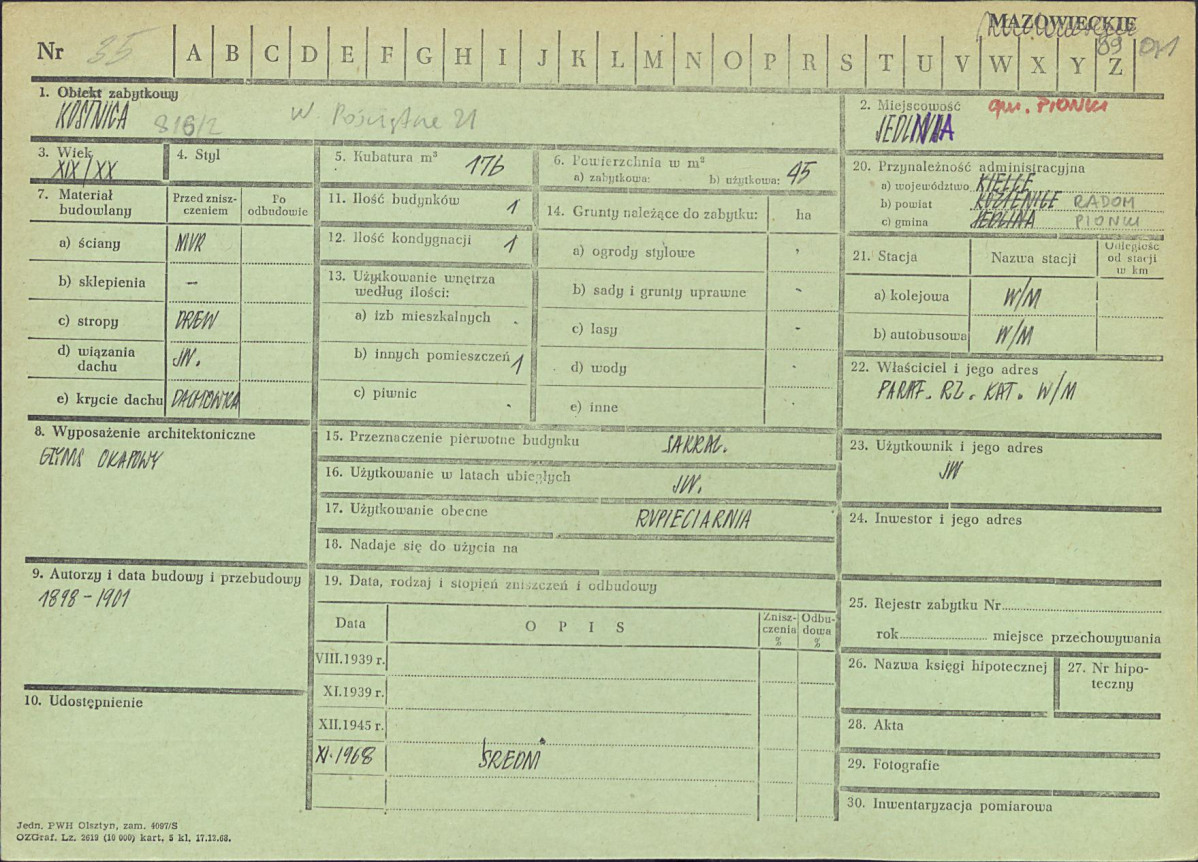 MAZOWIECKIE
Nr 35 A B C D E F G H I J K L M N O P R S T U V W X Y Z
1. Obiekt zabytkowy
KOSTNICA 816/2 W Pościętne 21
2. Miejscowość gm. PIONKI
JEDLNIA
3. Wiek
XIX/XX
4. Styl
5. Kubatura m³ 176
6. Powierzchnia w m²
a) zabytkowa: b) użytkowa: 45
7. Materiał budowlany
Przed zniszczeniem
Po odbudowie
a) ściany MUR
b) sklepienia —
c) stropy DREW
d) wiązania dachu JW.
e) krycie dachu DACHÓWKA
8. Wyposażenie architektoniczne
GZYMS OKAPOWY
9. Autorzy i data budowy i przebudowy
1898-1901
10. Udostępnienie
11. Ilość budynków 1
12. Ilość kondygnacji 1
13. Użytkowanie wnętrza
według ilości:
a) izb mieszkalnych -
b) innych pomieszczeń 1
c) piwnic -
14. Grunty należące do zabytku: ha
a) ogrody stylowe -
b) sady i grunty uprawne -
c) lasy -
d) wody
e) inne
15. Przeznaczenie pierwotne budynku SAKRAL.
16. Użytkowanie w latach ubiegłych JW.
17. Użytkowanie obecne RUPIECIARNIA
18. Nadaje się do użycia na
19. Data, rodzaj i stopień zniszczeń i odbudowy
Data OPIS Zniszczenia % Odbudowa %
VIII.1939 r.
XI.1939 r.
XII.1945 r.
XI.1968 ŚREDNI
20. Przynależność administracyjna
a) województwo KIELCE
b) powiat KOZIENICE RADOM
c) gmina JEDLNIA PIONKI
21. Stacja Nazwa stacji Odległość od stacji w km
a) kolejowa W/M
b) autobusowa W/M
22. Właściciel i jego adres
PARAF. RZ. KAT. W/M
23. Użytkownik i jego adres
JW
24. Inwestor i jego adres
25. Rejestr zabytku Nr
rok miejsce przechowywania
26. Nazwa księgi hipotecznej
27. Nr hipoteczny
28. Akta
29. Fotografie
30. Inwentaryzacja pomiarowa
Jedn. PWH Olsztyn, zam. 4097/S
OZGraf. Lz. 2619 (10 000) kart. 5 kl. 17.12.68.